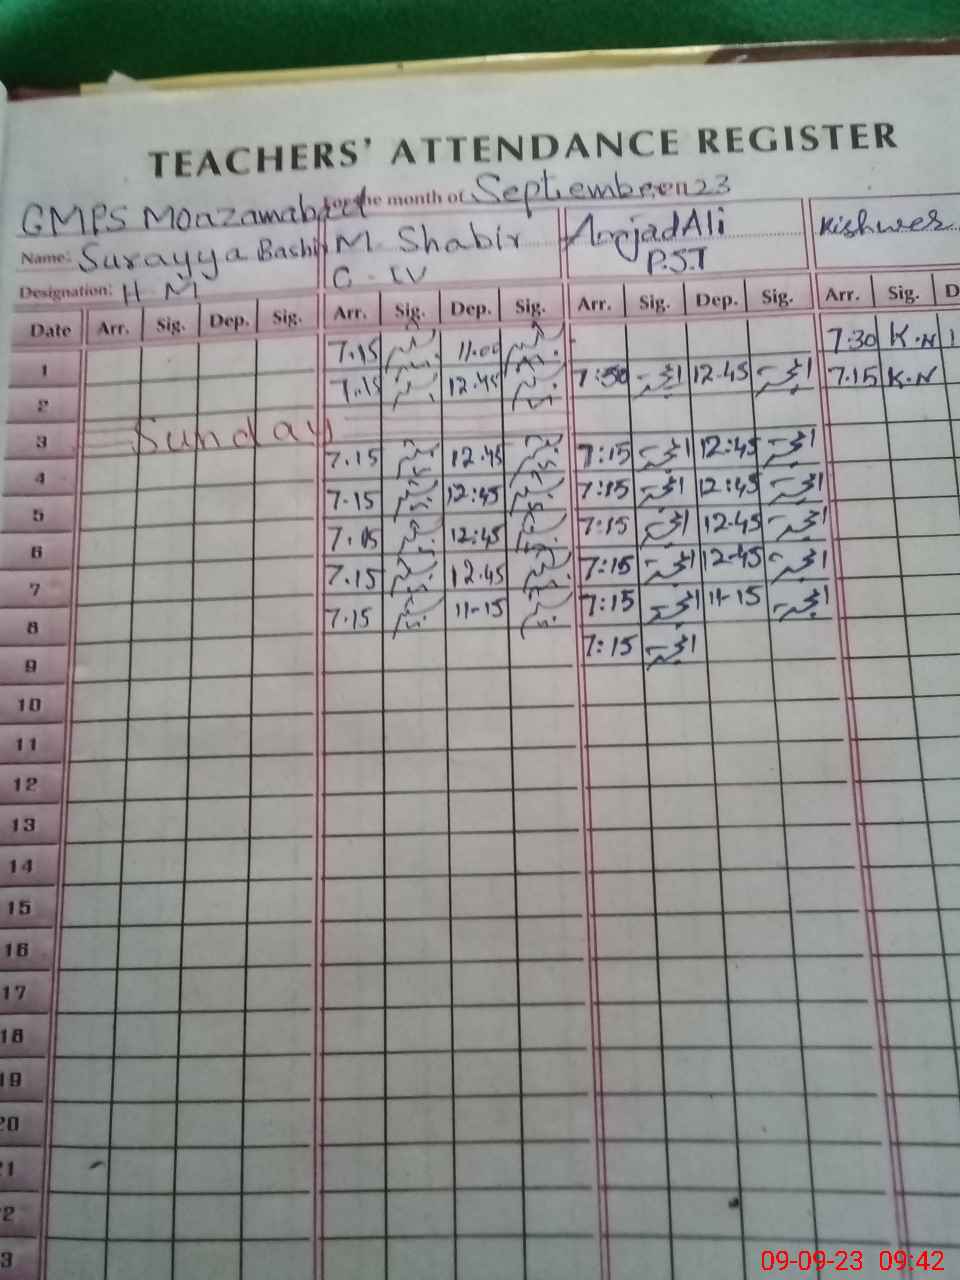 TEACHERS' ATTENDANCE REGISTER
GMPS Moazamabad For the month of September 23
Name: Surayya Bashir M. Shabir Amjad Ali Kishwer
Designation: H.M C-IV P.S.T
Date Arr. Sig. Dep. Sig. Arr. Sig. Dep. Sig. Arr. Sig. Dep. Sig. Arr. Sig. D
1 7.15 11.00 7.30 K.N 1
2 7.15 12.45 7:30 12.45 7.15 K.N
3 Sunday
4 7.15 12.45 7:15 12:45
5 7.15 12:45 7:15 12:45
6 7.15 12:45 7:15 12.45
7 7.15 12.45 7:15 12-45
8 7.15 11-15 7:15 11-15
9 7:15
10
11
12
13
14
15
16
17
18
19
20
21
2
3
09-09-23 09:42